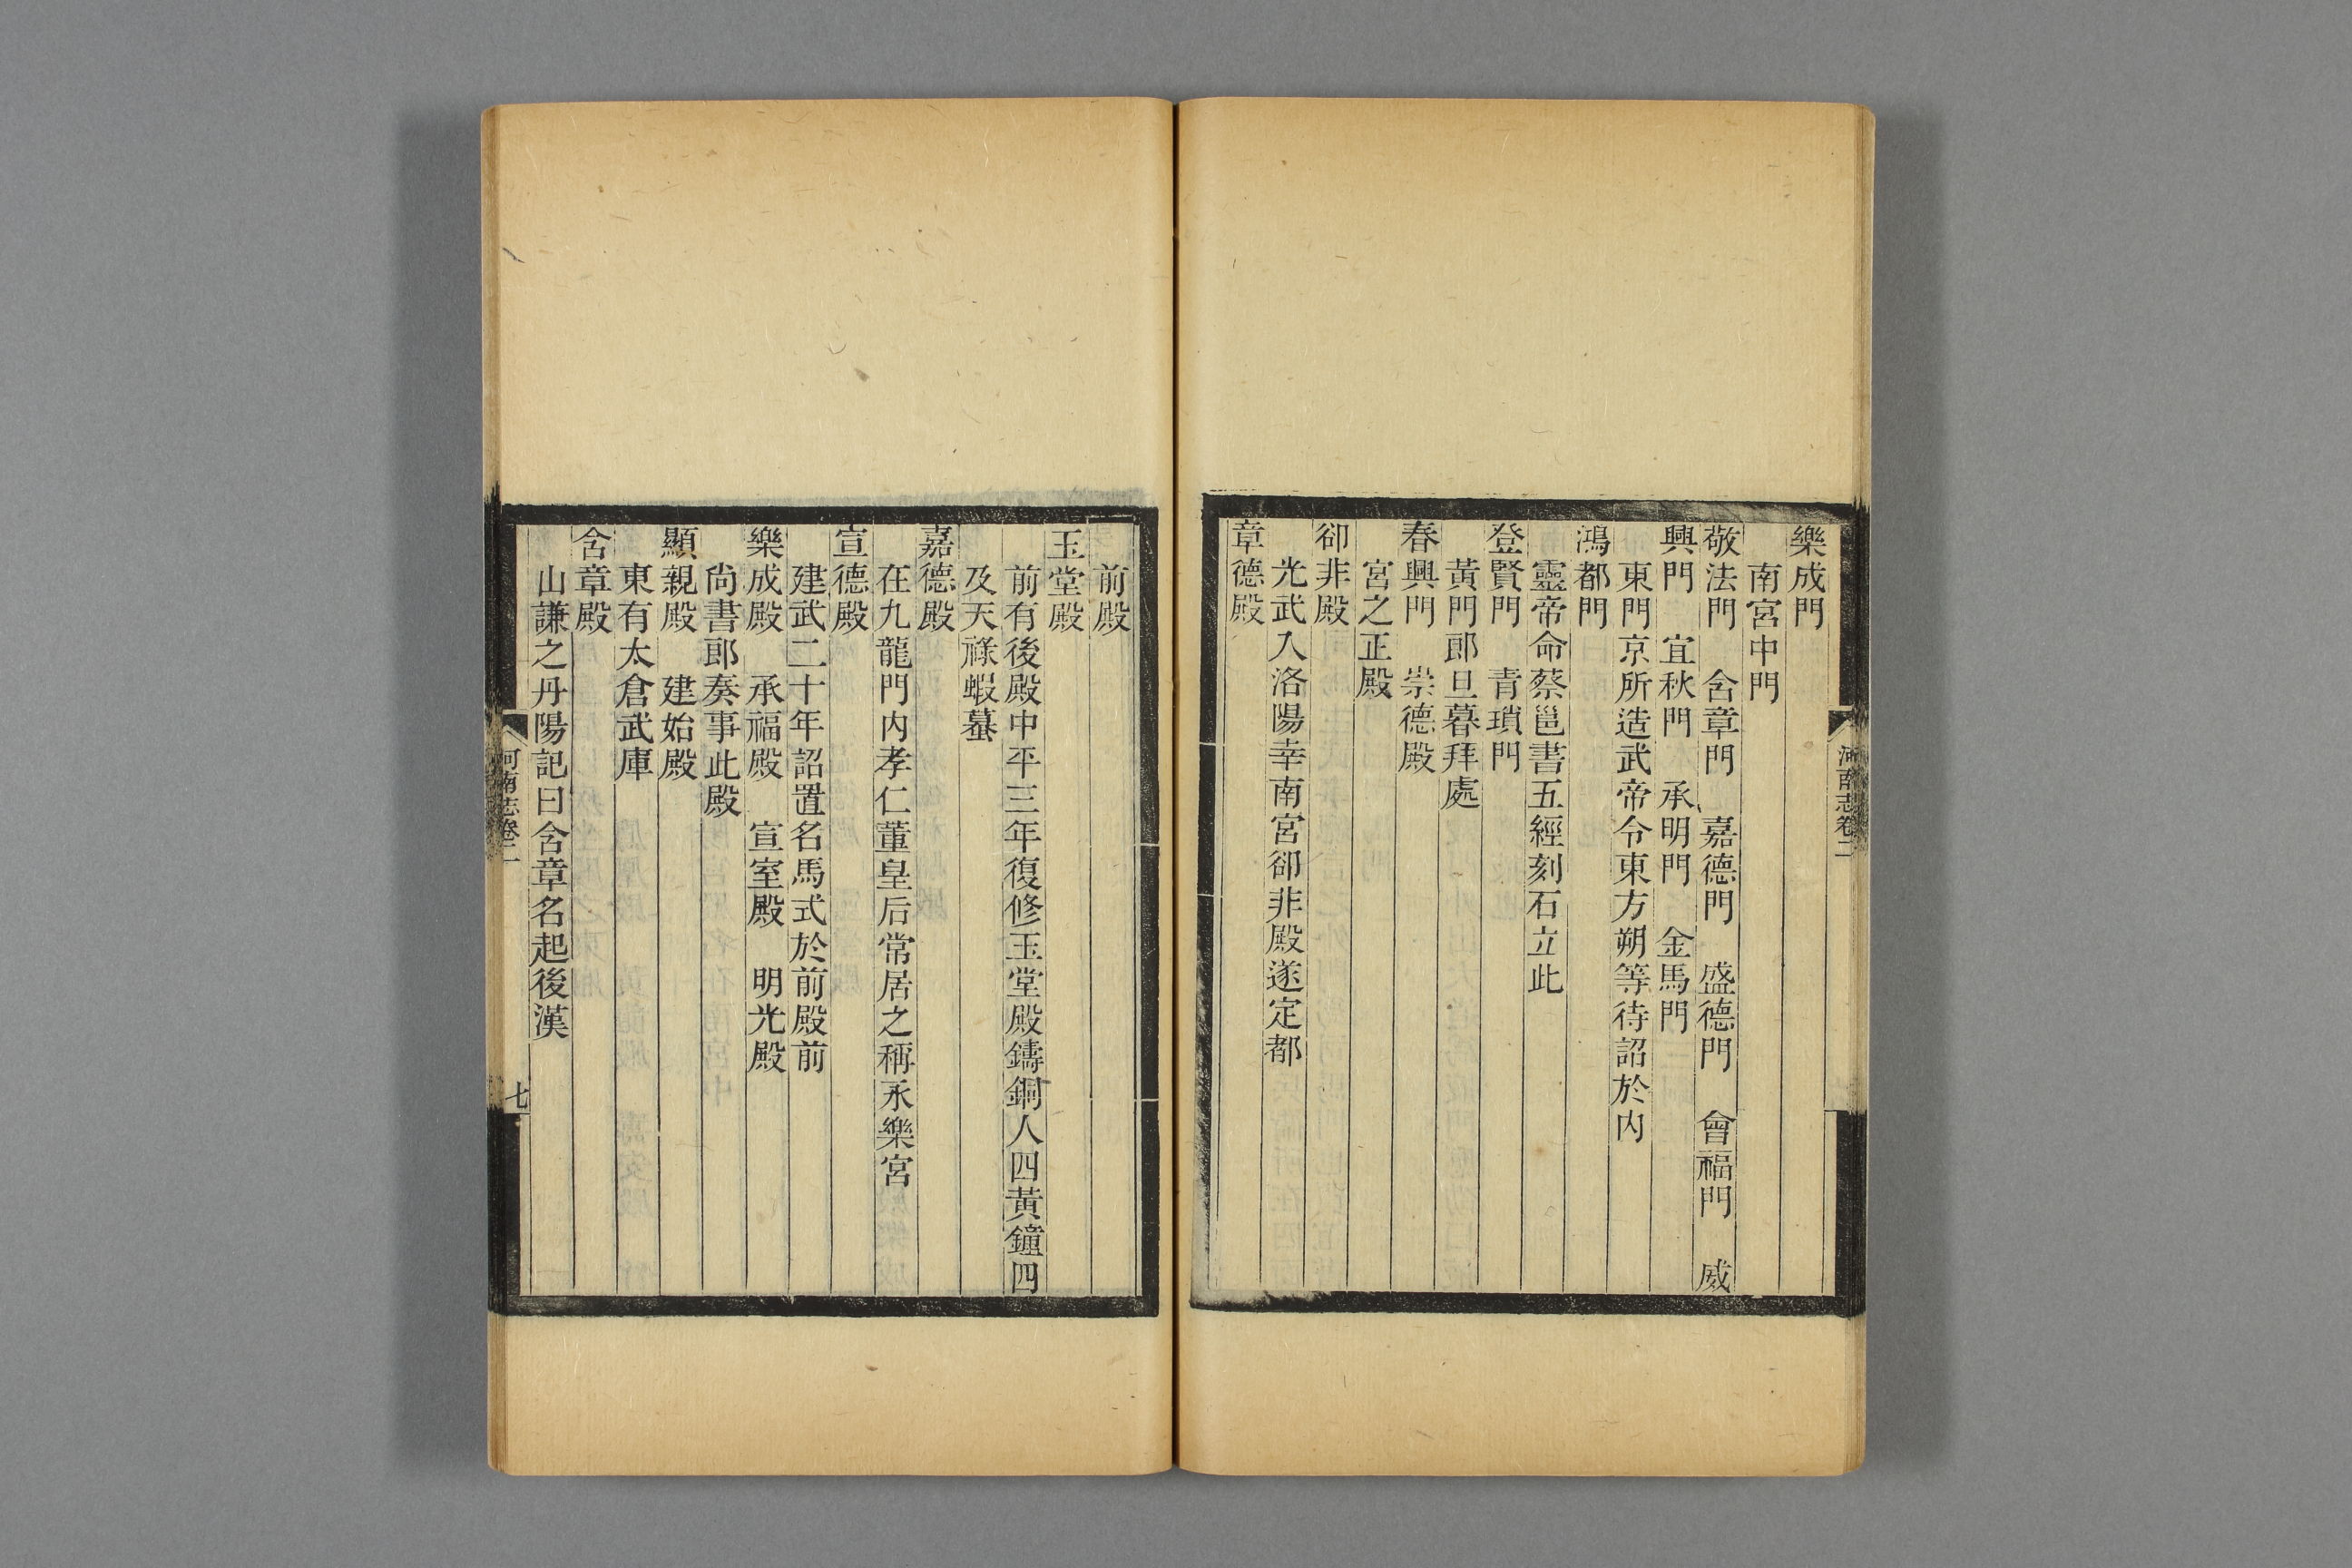 樂成門
南宮中門
敬法門　含章門　嘉德門　盛德門　會福門　威
興門　宜秋門　承明門　金馬門
東門京所造武帝令東方朔等待詔於內
鴻都門
靈帝命蔡邕書五經刻石立此
登賢門　青瑣門
黃門郎旦暮拜處
春興門　崇德殿
宮之正殿
卻非殿
光武入洛陽幸南宮卻非殿遂定都
章德殿
河南志卷二
前殿
玉堂殿
前有後殿中平三年復修玉堂殿鑄銅人四黃鐘四
及天祿蝦蟇
嘉德殿
在九龍門內孝仁董皇后常居之稱永樂宮
宣德殿
建武二十年詔置名馬式於前殿前
樂成殿　承福殿　宣室殿　明光殿
尙書郎奏事此殿
顯親殿　建始殿
東有太倉武庫
含章殿
山謙之丹陽記曰含章名起後漢
河南志卷二　七